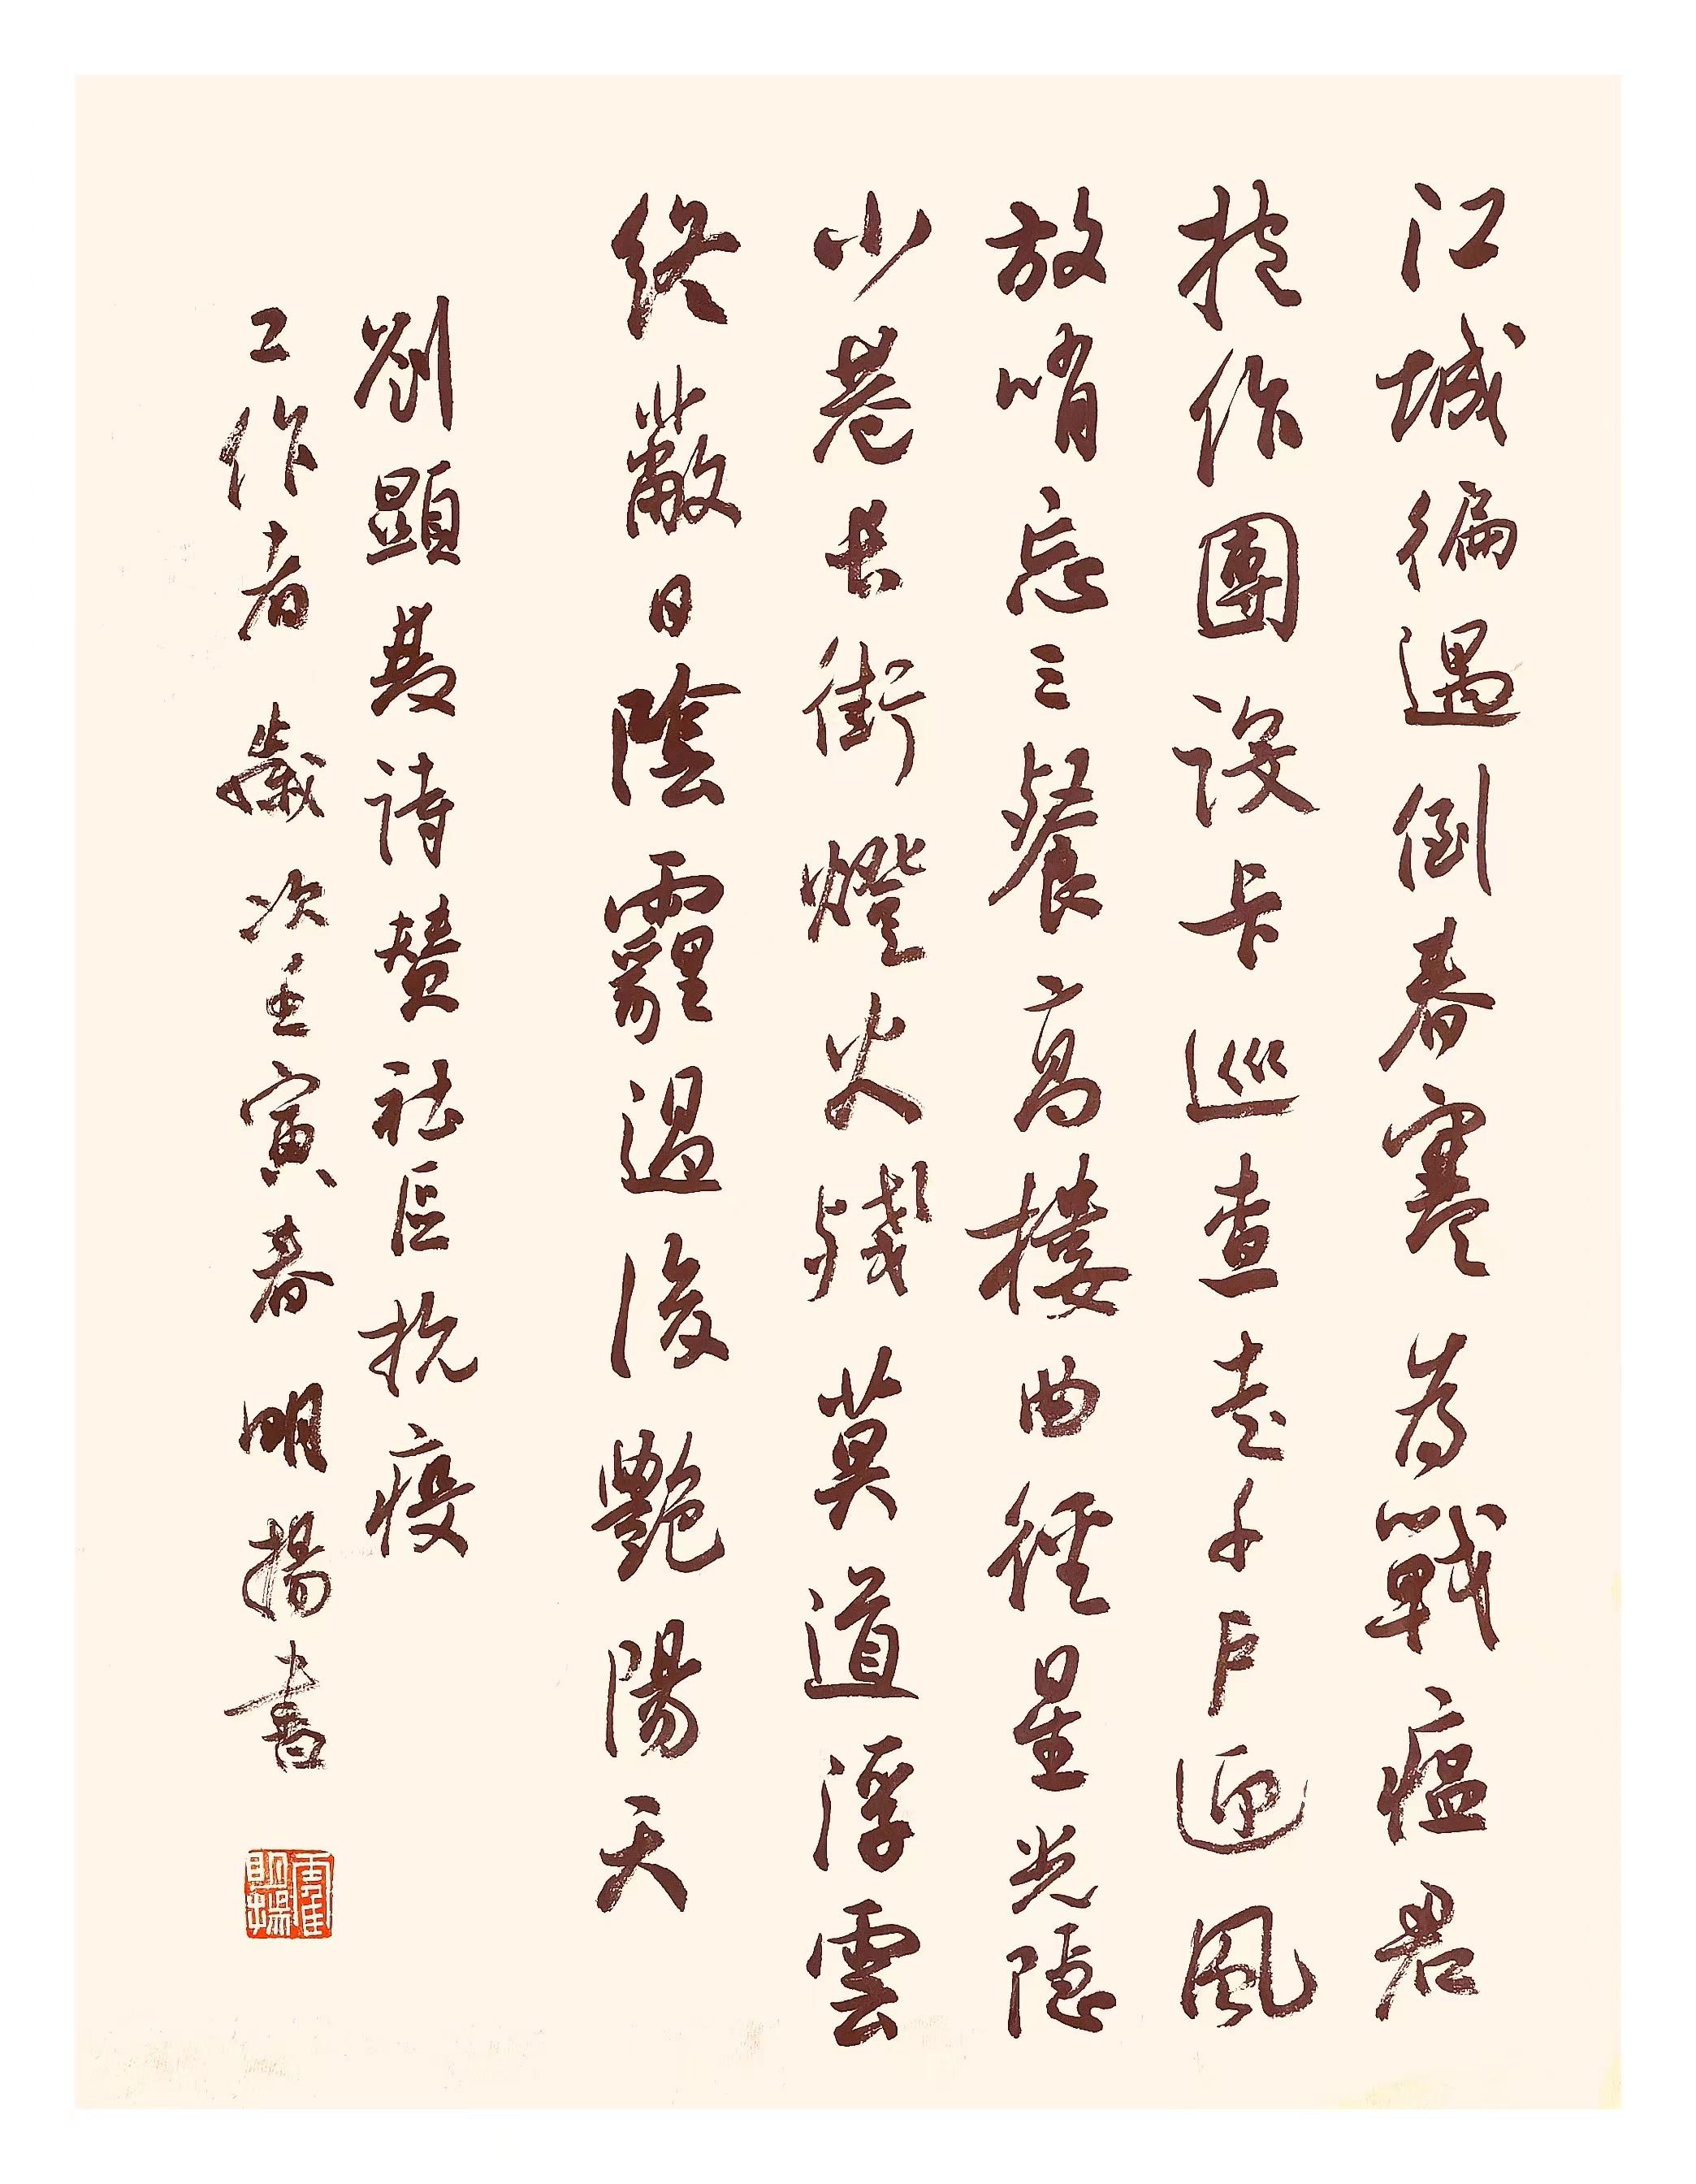 江城徧遇倒春寒為戰瘟君
抱作團設卡巡查走千戶迎風
放哨忘三餐高樓曲徑星光隱
小巷長街燈火殘莫道浮雲
終蔽日陰霾過後艷陽天
劉顯
詩贊社區抗疫
工作者 歲次壬寅春明揚書